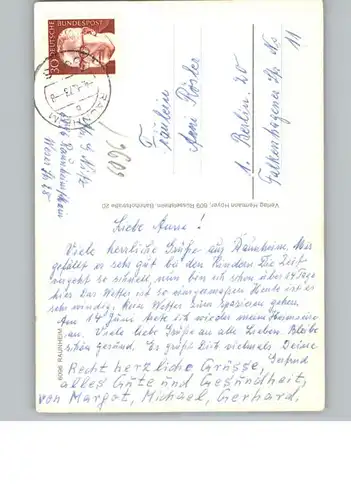 30 DEUTSCHE BUNDESPOST
RAUNHEIM
6096 Raunheim/Main
Weser Str
Fräulein
Anni Rösler
1. Berlin. 20
Falkenhagener Str. No
11
Verlag Hermann Hoyer, 609 Rüsselsheim, Bahnhofstraße 20
6096 RAUNHEIM
Liebe Anna!
Viele herrliche Grüße aus Raunheim. Mir
gefällt es sehr gut bei den Kindern. Die Zeit
vergeht so schnell, nun bin ich schon über 14 Tage
hier. Das Wetter ist so einigermaßen. Heute ist es
sehr windig, kein Wetter zum Spazieren gehen.
Am 14 Juni
an. Viele liebe Grüße an alle Lieben. Bleibe
schön gesund. Es grüßt Dich vielmals Deine
Gertrud
Recht herzliche Grüsse,
alles Gute und Gesundheit,
von Margot, Michael, Gerhard,